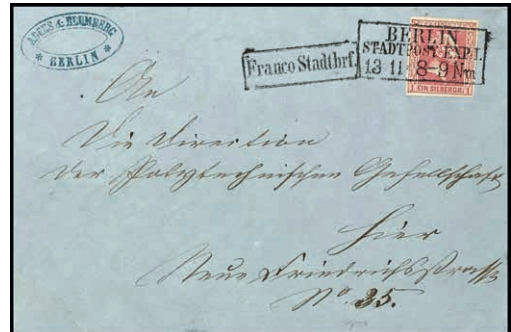 ADGES & BLUMBERG
* BERLIN *
Franco Stadtbrf.
BERLIN
STADTPOST-EXP. I.
13 11 8-9 Nm
1 EIN SILBERGR. 1
An
Die Direction
der Polytechnischen Gesellschaft
Hier
Neue Friedrichsstrasse
No 35.